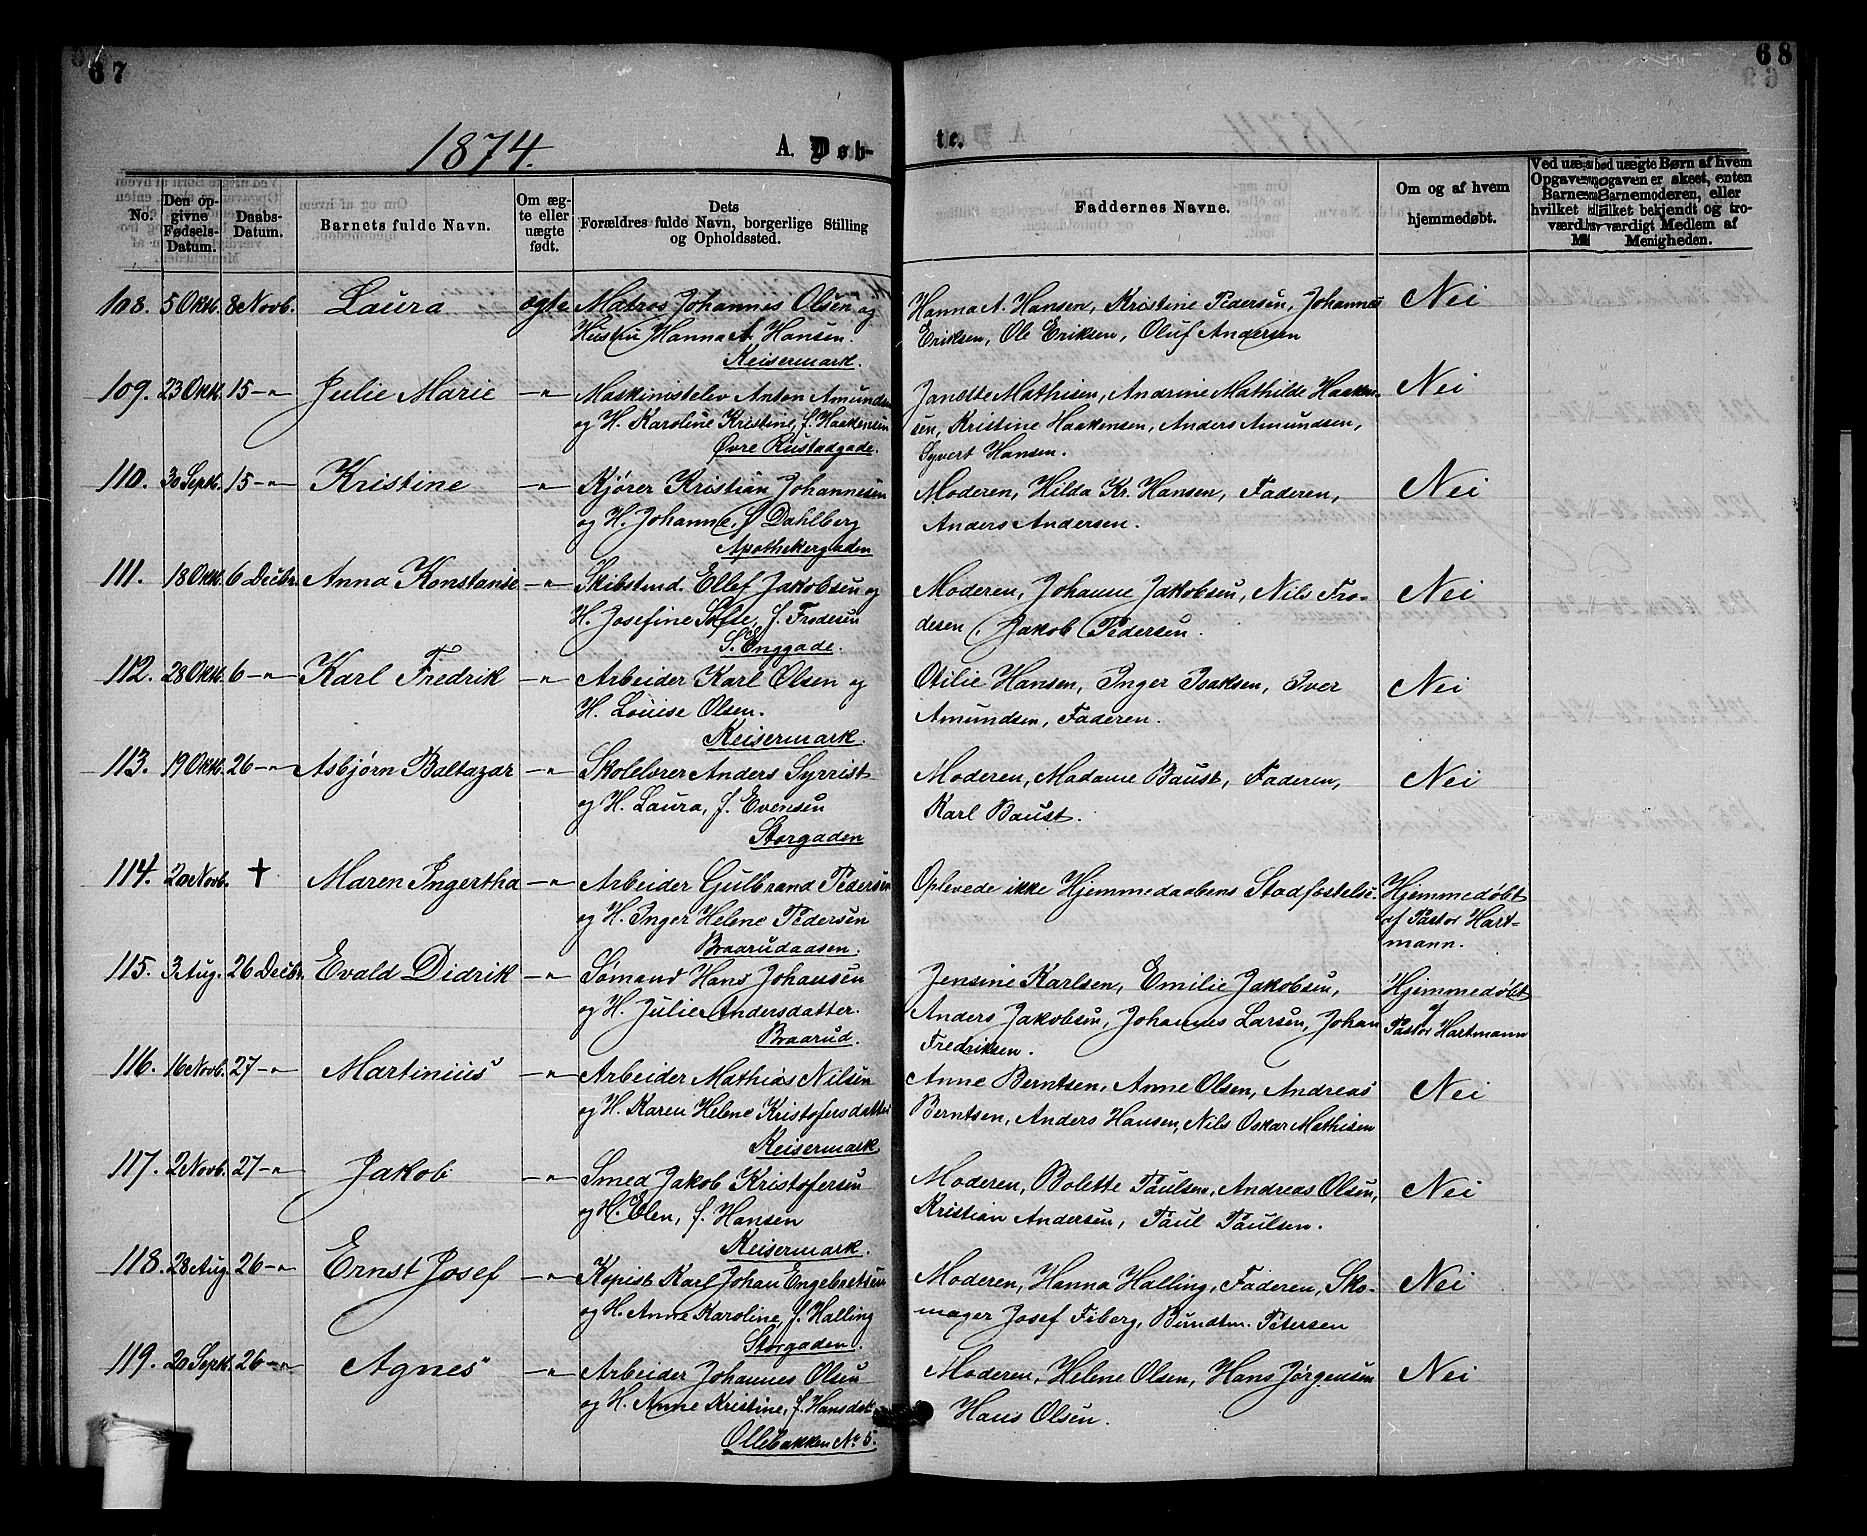 67
68
1874.
A. Døb-
te.
No.
Den op-
givne
Fødsels-
Datum.
Daabs-
Datum.
Barnets fulde Navn.
Om æg-
te eller
uægte
født.
Dets
Forældres fulde Navn, borgerlige Stilling
og Opholdssted.
Faddernes Navne.
Om og af hvem
hjemmedøbt.
108. 5 Oktb. 8 Novb. Laura ægte Matros Johannes Olsen og
Hustru Hanna A. Hansen.
Keisermark.
Hanna A. Hansen, Kristine Pedersen, Johannes
Eriksen, Ole Eriksen, Oluf Andersen
Nei
109. 23 Oktb. 15 -"- Julie Marie -"- Maskinistelev Anton Amundsen
og H. Karoline Kristine, f. Haakensen
Øvre Rustadgade.
Janette Mathisen, Andrine Mathilde Haaken-
sen, Kristine Haakensen, Anders Amundsen,
Syvert Hansen.
Nei
110. 30 Septb. 15 -"- Kristine -"- Kjører Kristian Johannesen
og H. Johanne, f. Dahlberg
Apothekergaden
Moderen, Hilda Kr. Hansen, Faderen,
Anders Andersen.
Nei
111. 18 Oktb. 6 Decbr. Anna Konstanse -"- Skibstmd. Ellef Jakobsen og
H. Josefine, f. Frodesen
S. Enggade.
Moderen, Johanne Jakobsen, Nils Fro-
desen, Jakob Pedersen.
Nei
112. 28 Oktb. 6 -"- Karl Fredrik -"- Arbeider Karl Olsen og
H. Louise Olsen.
Keisermark.
Otilie Hansen, Inger Isaksen, Iver
Amundsen, Faderen.
Nei
113. 19 Oktb. 26 -"- Asbjørn Baltazar -"- Skolelærer Anders Syrrist
og H. Laura, f. Evensen
Storgaden
Moderen, Madame Baust, Faderen,
Karl Baust.
Nei
114. 20 Novb. † Maren Ingertha -"- Arbeider Gulbrand Pedersen
og H. Inger Helene Pedersen
Braarudaasen.
Oplevede ikke Hjemmedaabens Stadfæstelse.
Hjemmedøbt
af Pastor Hart-
mann.
115. 3 Aug. 26 Decbr. Evald Didrik -"- Sømand Hans Johansen
og H. Julie Andersdatter.
Braarud.
Jensine Karlsen, Emilie Jakobsen,
Anders Jakobsen, Johannes Larsen, Johan
Fredriksen.
Hjemmedøbt
af
Pastor Hartmann
116. 16 Novb. 27 -"- Martinius -"- Arbeider Mathias Nilsen
og H. Karen Helene Kristofersdatter
Keisermark
Anne Berntsen, Anne Olsen, Andreas
Berntsen, Anders Hansen, Nils Oskar Mathisen
Nei
117. 2 Novb. 27 -"- Jakob -"- Smed Jakob Kristofersen
og H. Elen, f. Hansen
Keisermark.
Moderen, Bolette Paulsen, Andreas Olsen,
Kristian Andersen, Paul Paulsen.
Nei
118. 28 Aug. 26 -"- Ernst Josef -"- Kopist Karl Johan Engebretsen
og H. Anne Karoline, f. Halling
Storgaden.
Moderen, Hanna Halling, Faderen, Sko-
mager Josef Fiberg, Bundtm. Petersen
Nei
119. 20 Septb. 26 -"- Agnes -"- Arbeider Johannes Olsen
og H. Anne Kristine, f. Hansdat.
Ollebakken No 5.
Moderen, Helene Olsen, Hans Jørgensen
Hans Olsen.
Nei